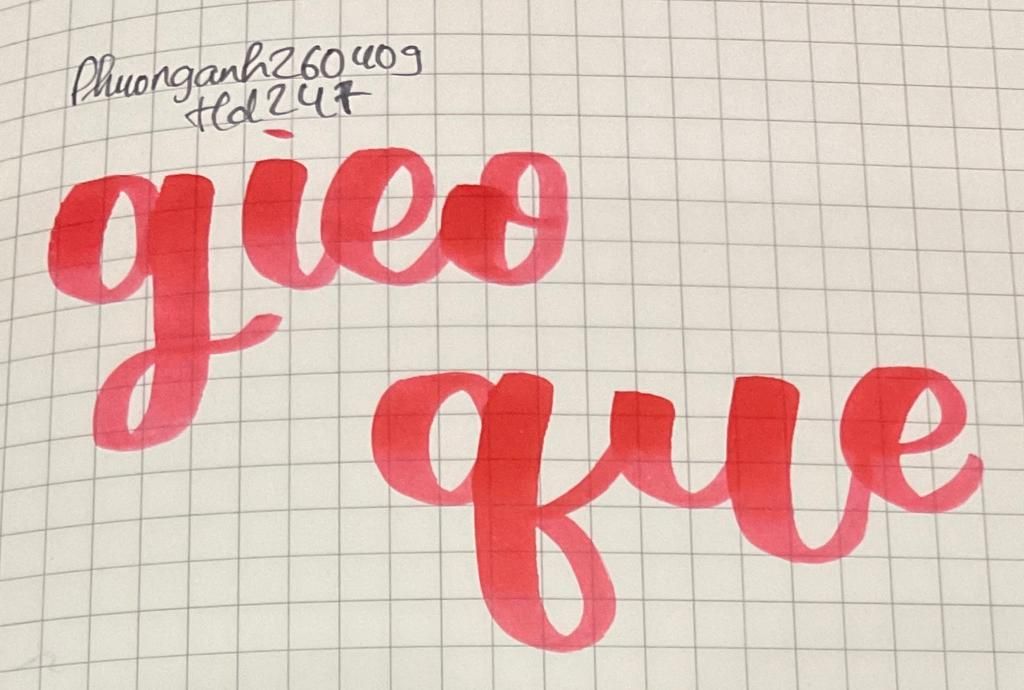 Phuonganh260409
Hd247
gieo
que